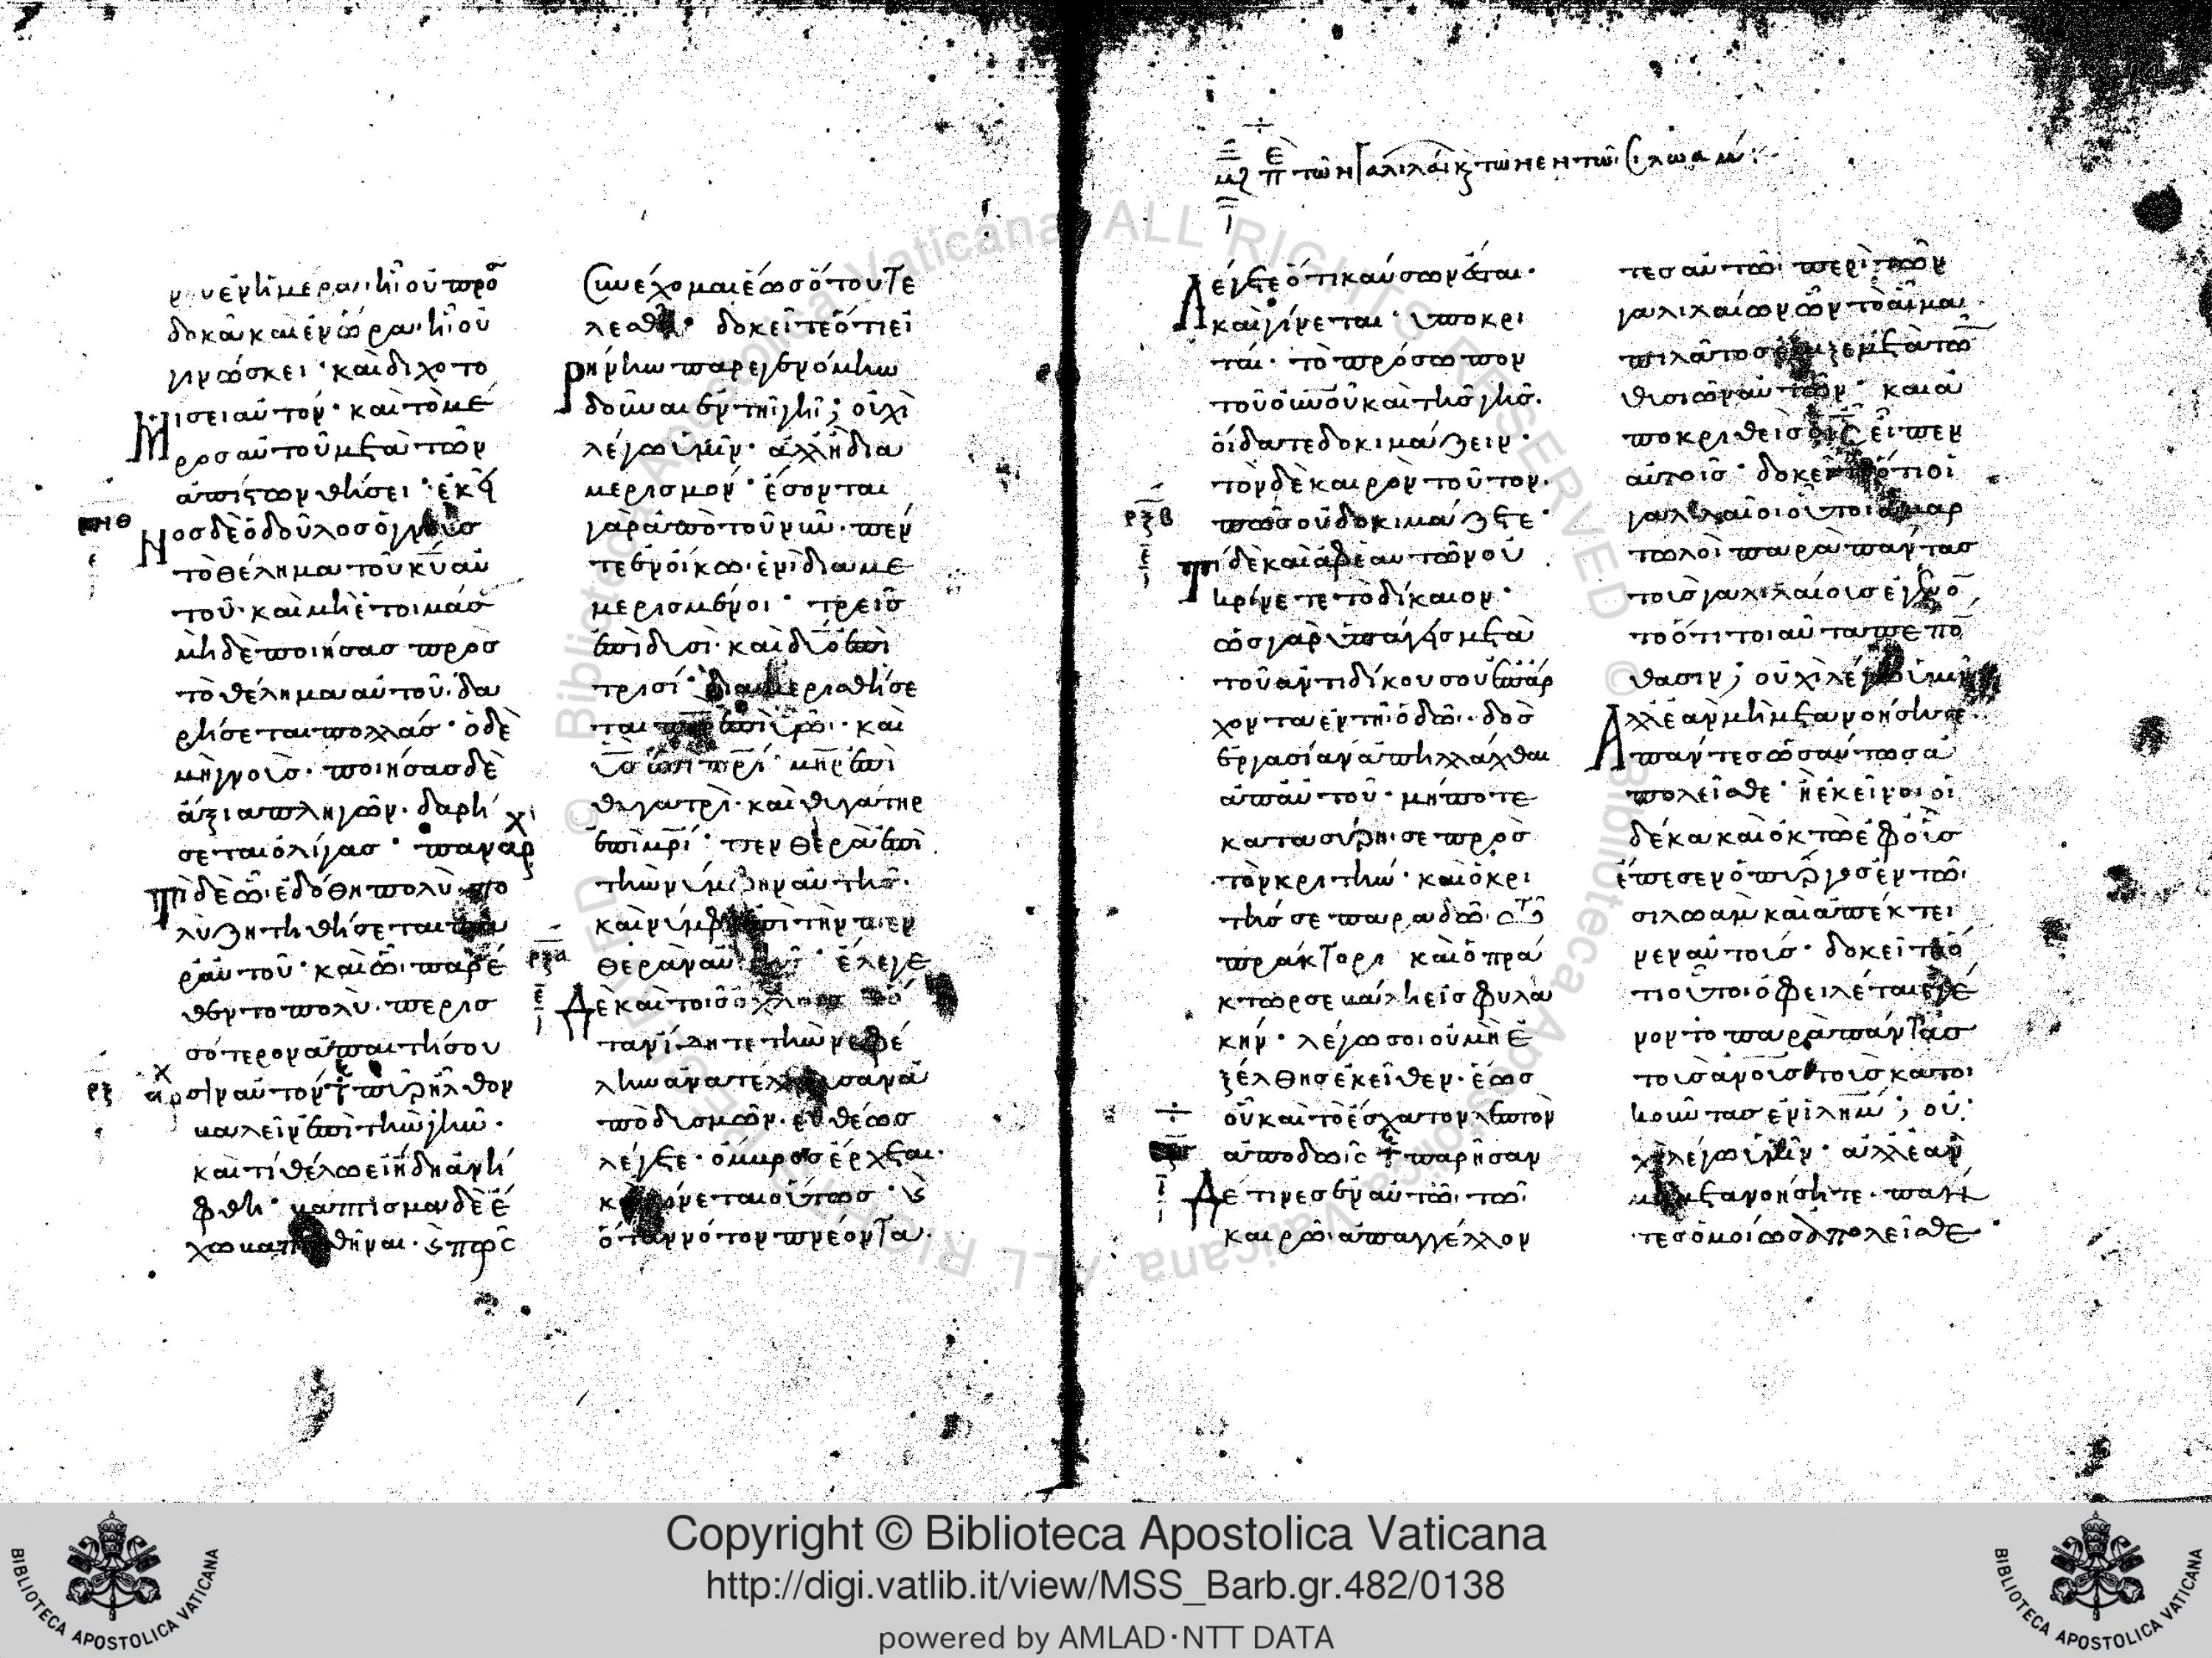 ν· ἐν ἡμέρα· ἧι οὐ προσ
δοκᾶ· καὶ ἐν ὥρα· ἧι οὐ
γινώσκει· καὶ διχοτο
μήσει αὐτόν· καὶ τὸ μέ
ρος αὐτοῦ μετὰ τῶν
ἀπίστων θήσει· ἐκεῖ
νος δὲ ὁ δοῦλος ὁ γνοὺς
τὸ θέλημα τοῦ κυ αὐ
τοῦ· καὶ μὴ ἑτοιμάσ
μηδὲ ποιήσας πρὸς
τὸ θέλημα αὐτοῦ· δα
ρήσεται πολλάς· ὁ δὲ
μὴ γνούς· ποιήσας δὲ
ἄξια πληγῶν· δαρή
σεται ὀλίγας· παντὶ
δὲ ὧι ἐδόθη πολὺ· πο
λὺ ζητηθήσεται παρ
αὐτοῦ· καὶ ὧι παρέ
θεντο πολὺ· περισ
σότερον ἀπαιτήσου
σιν αὐτόν· πῦρ ἦλθον
βαλεῖν ἐπὶ τὴν γῆν·
καὶ τί θέλω εἰ ἤδη ἀνή
φθη· βάπτισμα δὲ ἔ
χω βαπτισθῆναι· καὶ πῶς
συνέχομαι ἕως ὅτου τε
λεσθῆι· δοκεῖτε ὅτι εἰ
ρήνην παρεγενόμην
δοῦναι ἐν τῆι γῆι; οὐχὶ
λέγω ὑμῖν· ἀλλ' ἢ δια
μερισμόν· ἔσονται
γὰρ ἀπὸ τοῦ νῦν· πέν
τε ἐν οἴκω· ἑνὶ διαμε
μερισμένοι· τρεῖς
ἐπὶ δυσὶ· καὶ δύο ἐπὶ
τρισί· διαμερισθήσε
ται πηρ ἐπὶ υω· καὶ
υς ἐπὶ πρι· μηρ ἐπὶ
θυγατρὶ· καὶ θυγάτηρ
ἐπὶ μρι· πενθερὰ ἐπὶ
τὴν νύμφην αὐτῆς·
καὶ νύμφη ἐπὶ τὴν πεν
θερὰν αὐτῆς· ἔλεγε
δὲ καὶ τοῖς ὄχλοις· ὅ
ταν ἴδητε τὴν νεφέ
λην ἀνατέλλουσαν ἀ
πὸ δυσμῶν· εὐθέως
λέγετε· ὄμβρος ἔρχεται·
καὶ γίνεται οὕτως· καὶ
ὅταν νότον πνέοντα·
μζ π τῶν Γαλιλαί κ τῶν ἐν τῶ Σιλωάμ
λέγετε ὅτι καύσων ἔσται·
καὶ γίνεται· ὑποκρι
ταί· τὸ πρόσωπον
τοῦ οὐνοῦ καὶ τῆς γῆς·
οἴδατε δοκιμάζειν·
τὸν δὲ καιρὸν τοῦτον·
ρξβ πῶς οὐ δοκιμάζετε·
τί δὲ καὶ ἀφ' ἑαυτῶν οὐ
κρίνετε τὸ δίκαιον·
ὡς γὰρ ὑπάγεις μετὰ
τοῦ ἀντιδίκου σου ἐπ' ἄρ
χοντα ἐν τῆι ὁδῶ· δὸς
ἐργασίαν ἀπηλλάχθαι
ἀπ' αὐτοῦ· μήποτε
κατασύρηι σε πρὸς
τὸν κριτὴν· καὶ ὁ κρι
τής σε παραδῶ τῶ
πράκτορι καὶ ὁ πρά
κτωρ σε βάληι εἰς φυλα
κήν· λέγω σοι οὐ μὴ ἐ
ξέλθης ἐκεῖθεν· ἕως
οὗ καὶ τὸ ἔσχατον λεπτὸν
ἀποδῶις παρῆσαν
δέ τινες ἐν αὐτῶ· τῶ·
καιρῶ· ἀπαγγέλλον
τες αὐτῶ· περὶ τῶν
γαλιλαίων ὧν τὸ αἷμα
πιλάτος ἔμιξε μετὰ τῶ
θυσιῶν αὐτῶν· καὶ ἀ
ποκριθεὶς ὁ ις εἶπεν
αὐτοῖς· δοκεῖτε ὅτι οἱ
γαλιλαῖοι οὗτοι ἁμαρ
τωλοὶ παρὰ πάντας
τοὺς γαλιλαίους ἐγένο
το ὅτι τοιαῦτα πεπό
θασιν; οὐχὶ λέγω ὑμῖν
ἀλλ' ἐὰν μὴ μετανοήσητε·
πάντες ὡσαύτως ἀ
πολεῖσθε· ἢ ἐκεῖνοι οἱ
δέκα καὶ ὀκτὼ ἐφ' οὓς
ἔπεσεν ὁ πύργος ἐν τῶ·
σιλωὰμ καὶ ἀπέκτει
νεν αὐτούς· δοκεῖτε ὅ
τι οὗτοι ὀφειλέται ἐγέ
νοντο παρὰ πάντας
τοὺς ανους τοὺς κατοι
κοῦντας ἐν ιλημ; οὐ
χὶ λέγω ὑμῖν· ἀλλ' ἐὰν
μὴ μετανοήσητε· πάν
τες ὁμοίως ἀπολεῖσθε·
Copyright © Biblioteca Apostolica Vaticana
http://digi.vatlib.it/view/MSS_Barb.gr.482/0138
powered by AMLAD·NTT DATA
BIBLIOTECA APOSTOLICA VATICANA
BIBLIOTECA APOSTOLICA VATICANA